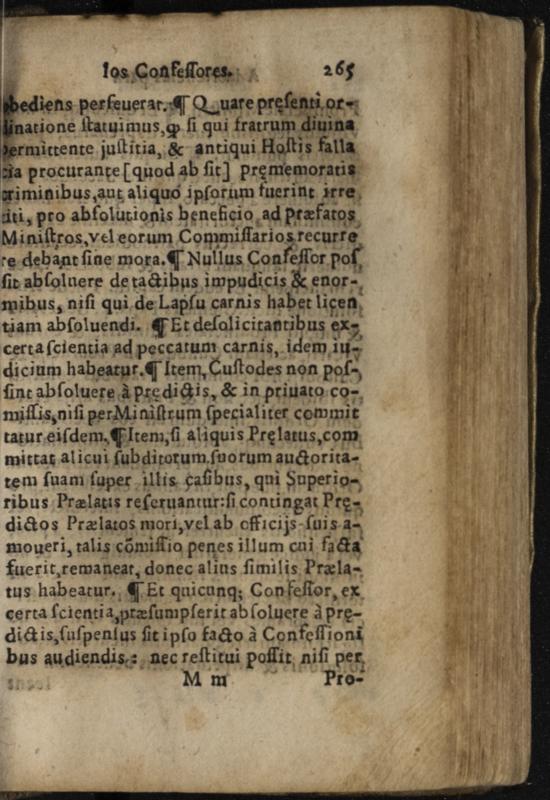 los Confessores. 265
obediens perseuerat. ¶ Quare pręsenti or-
dinatione statuimus, ꝙ si qui fratrum diuina
permittente justitia, & antiqui Hostis falla
cia procurante [quod ab sit] pręmemoratis
criminibus, aut aliquo ipsorum fuerint irre
titi, pro absolutionis beneficio ad præfatos
Ministros, vel eorum Commissarios recurre
re debant sine mora. ¶ Nullus Confessor pos
sit absoluere de tactibus impudicis & enor-
mibus, nisi qui de Lapsu carnis habet licen
tiam absoluendi. ¶ Et de solicitantibus ex-
certa scientia ad peccatum carnis, idem iu-
dicium habeatur. ¶ Item, Custodes non pos-
sint absoluere à prędictis, & in priuato co-
missis, nisi per Ministrum specialiter commit
tatur eisdem. ¶ Item, si aliquis Pręlatus, com
mittat alicui subditorum suorum auctorita-
tem suam super illis casibus, qui Superio-
ribus Prælatis reseruantur: si contingat Prę-
dictos Prælatos mori, vel ab officijs suis a-
moueri, talis cōmissio penes illum cui facta
fuerit, remaneat, donec alius similis Præla-
tus habeatur. ¶ Et quicunq; Confessor, ex
certa scientia, præsumpserit absoluere à prę-
dictis, suspensus sit ipso facto à Confessioni
bus audiendis: nec restitui possit nisi per
M m Pro-